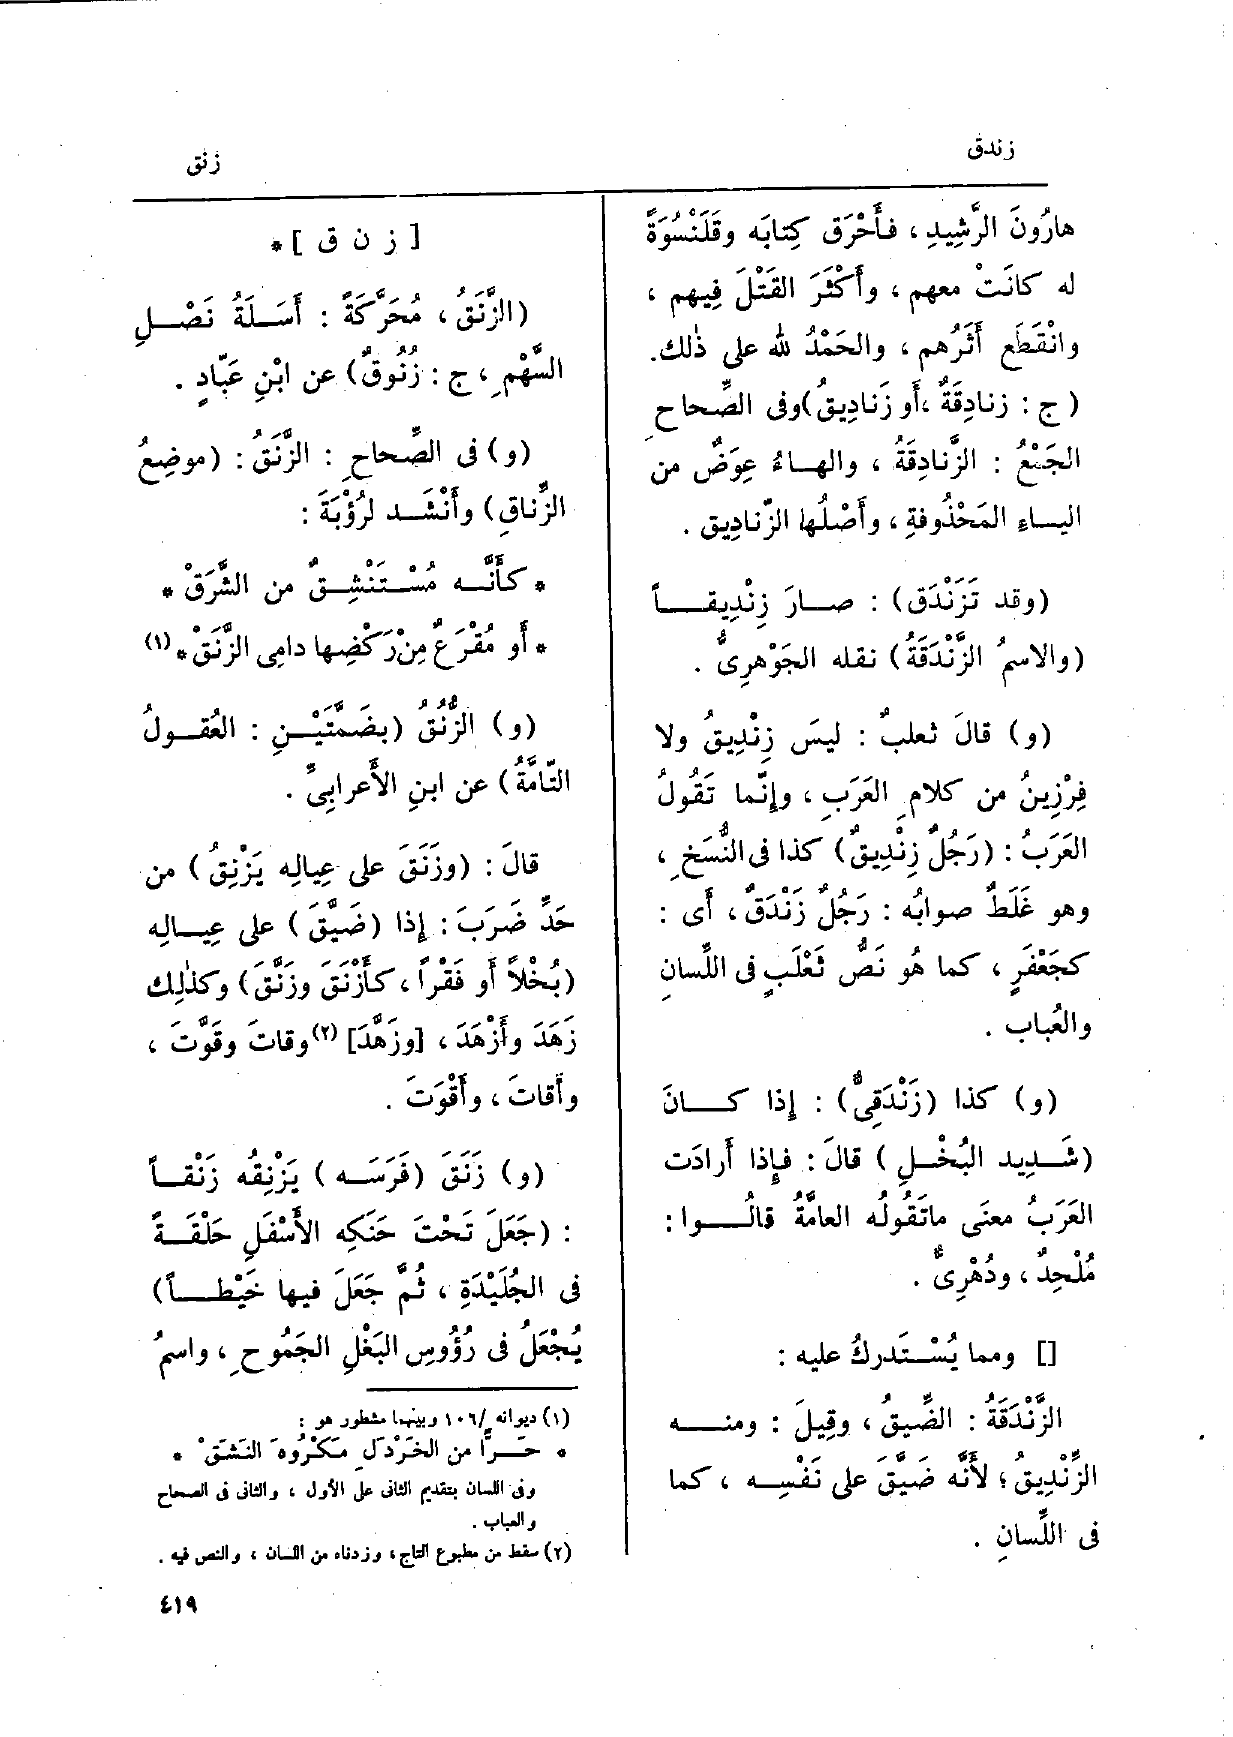 زندق
زنق
هارُونَ الرَّشِيدِ ، فأَحْرَق كِتابَه وقَلَنْسُوَةً
له كانَتْ معهم ، وأَكْثَرَ القَتْلَ فِيهم ،
وانْقَطَع أَثَرُهم ، والحَمْدُ لله على ذٰلك.
( ج : زنادِقَةٌ ،أَو زَنادِيقُ)وفى الصِّحاحِ
الجَمْعُ : الزَّنادِقَةُ ، والهاءُ عِوَضٌ من
الياءِ المَحْذُوفةِ ، وأَصْلُها الزَّنادِيق .
(وقد تَزَنْدَق) : صارَ زِنْدِيقاً
(والاسمُ الزَّنْدَقَةُ) نقله الجَوْهرِىُّ .
(و) قالَ ثعلبٌ : ليسَ زِنْدِيقُ ولا
فِرْزِينُ من كلامِ العَرَبِ ، وإِنَّما تَقُولُ
العَرَبُ : (رَجُلٌ زِنْدِيقٌ) كذا فى النُّسَخِ ،
وهو غَلَطٌ صوابُه : رَجُلٌ زَنْدَقٌ ، أَى :
كجَعْفَرٍ ، كما هُو نَصُّ ثَعْلَبٍ فى اللِّسانِ
والعُبابِ .
(و) كذا (زَنْدَقِىٌّ) : إِذا كانَ
(شَدِيد البُخْلِ ) قالَ : فإِذا أَرادَت
العَرَبُ معنى ماتَقُولُه العامَّةُ قالُوا :
مُلْحِدٌ ، ودُهْرِىٌّ .
[] ومما يُسْتَدركُ عليه :
الزَّنْدَقَةُ : الضِّيقُ ، وقِيلَ : ومنه
الزِّنْدِيقُ ؛ لأَنَّه ضَيَّقَ على نَفْسِه ، كما
فى اللِّسانِ .
[ ز ن ق ]*
(الزَّنَقُ ، مُحَرَّكَةً : أَسَلَةُ نَصْلِ
السَّهْمِ ، ج : زُنُوقٌ) عن ابْنِ عَبّادٍ .
(و) فى الصِّحاحِ : الزَّنَقُ : (موضِعُ
الزِّناقِ) وأَنْشَد لرُؤْبَةَ :
* كأَنَّه مُسْتَنْشِقٌ من الشَّرَقْ *
* أَو مُقْرَعٌ مِنْ رَكْضِها دامِى الزَّنَقْ * (١)
(و) الزُّنُقُ (بضَمَّتَيْنِ : العُقولُ
التّامَّةُ) عن ابنِ الأَعرابِىِّ .
قالَ : (وزَنَقَ على عِيالِه يَزْنِقُ ) من
حَدِّ ضَرَبَ : إِذا (ضَيَّقَ ) على عِيالِه
(بُخْلاً أَو فَقْراً ، كأَزْنَقَ وزَنَّقَ) وكذٰلِك
زَهَدَ وأَزْهَدَ ، [وزَهَّدَ] (٢) وقاتَ وقَوَّتَ ،
وأَقاتَ ، وأَقْوَتَ .
(و) زَنَقَ (فَرَسَه ) يَزْنِقُه زَنْقاً
: (جَعَلَ تَحْتَ حَنَكِه الأَسْفَلِ حَلْقَةً
فى الجُلَيْدَةِ ، ثُمَّ جَعَلَ فيها خَيْطاً)
يُجْعَلُ فى رُؤُوسِ البَغْلِ الجَمُوحِ ، واسمُ
(١) ديوانه /١٠٦ وبينهما مشطور هو :
* حَرًّا من الخَرْدَلِ مَكْرُوهَ النَّشَقْ *
وفى اللسان بتقديم الثانى على الأول ، والثانى فى الصحاح
والعباب .
(٢) سقط من مطبوع التاج، وزدناه من اللسان ، والنص فيه .
٤١٩